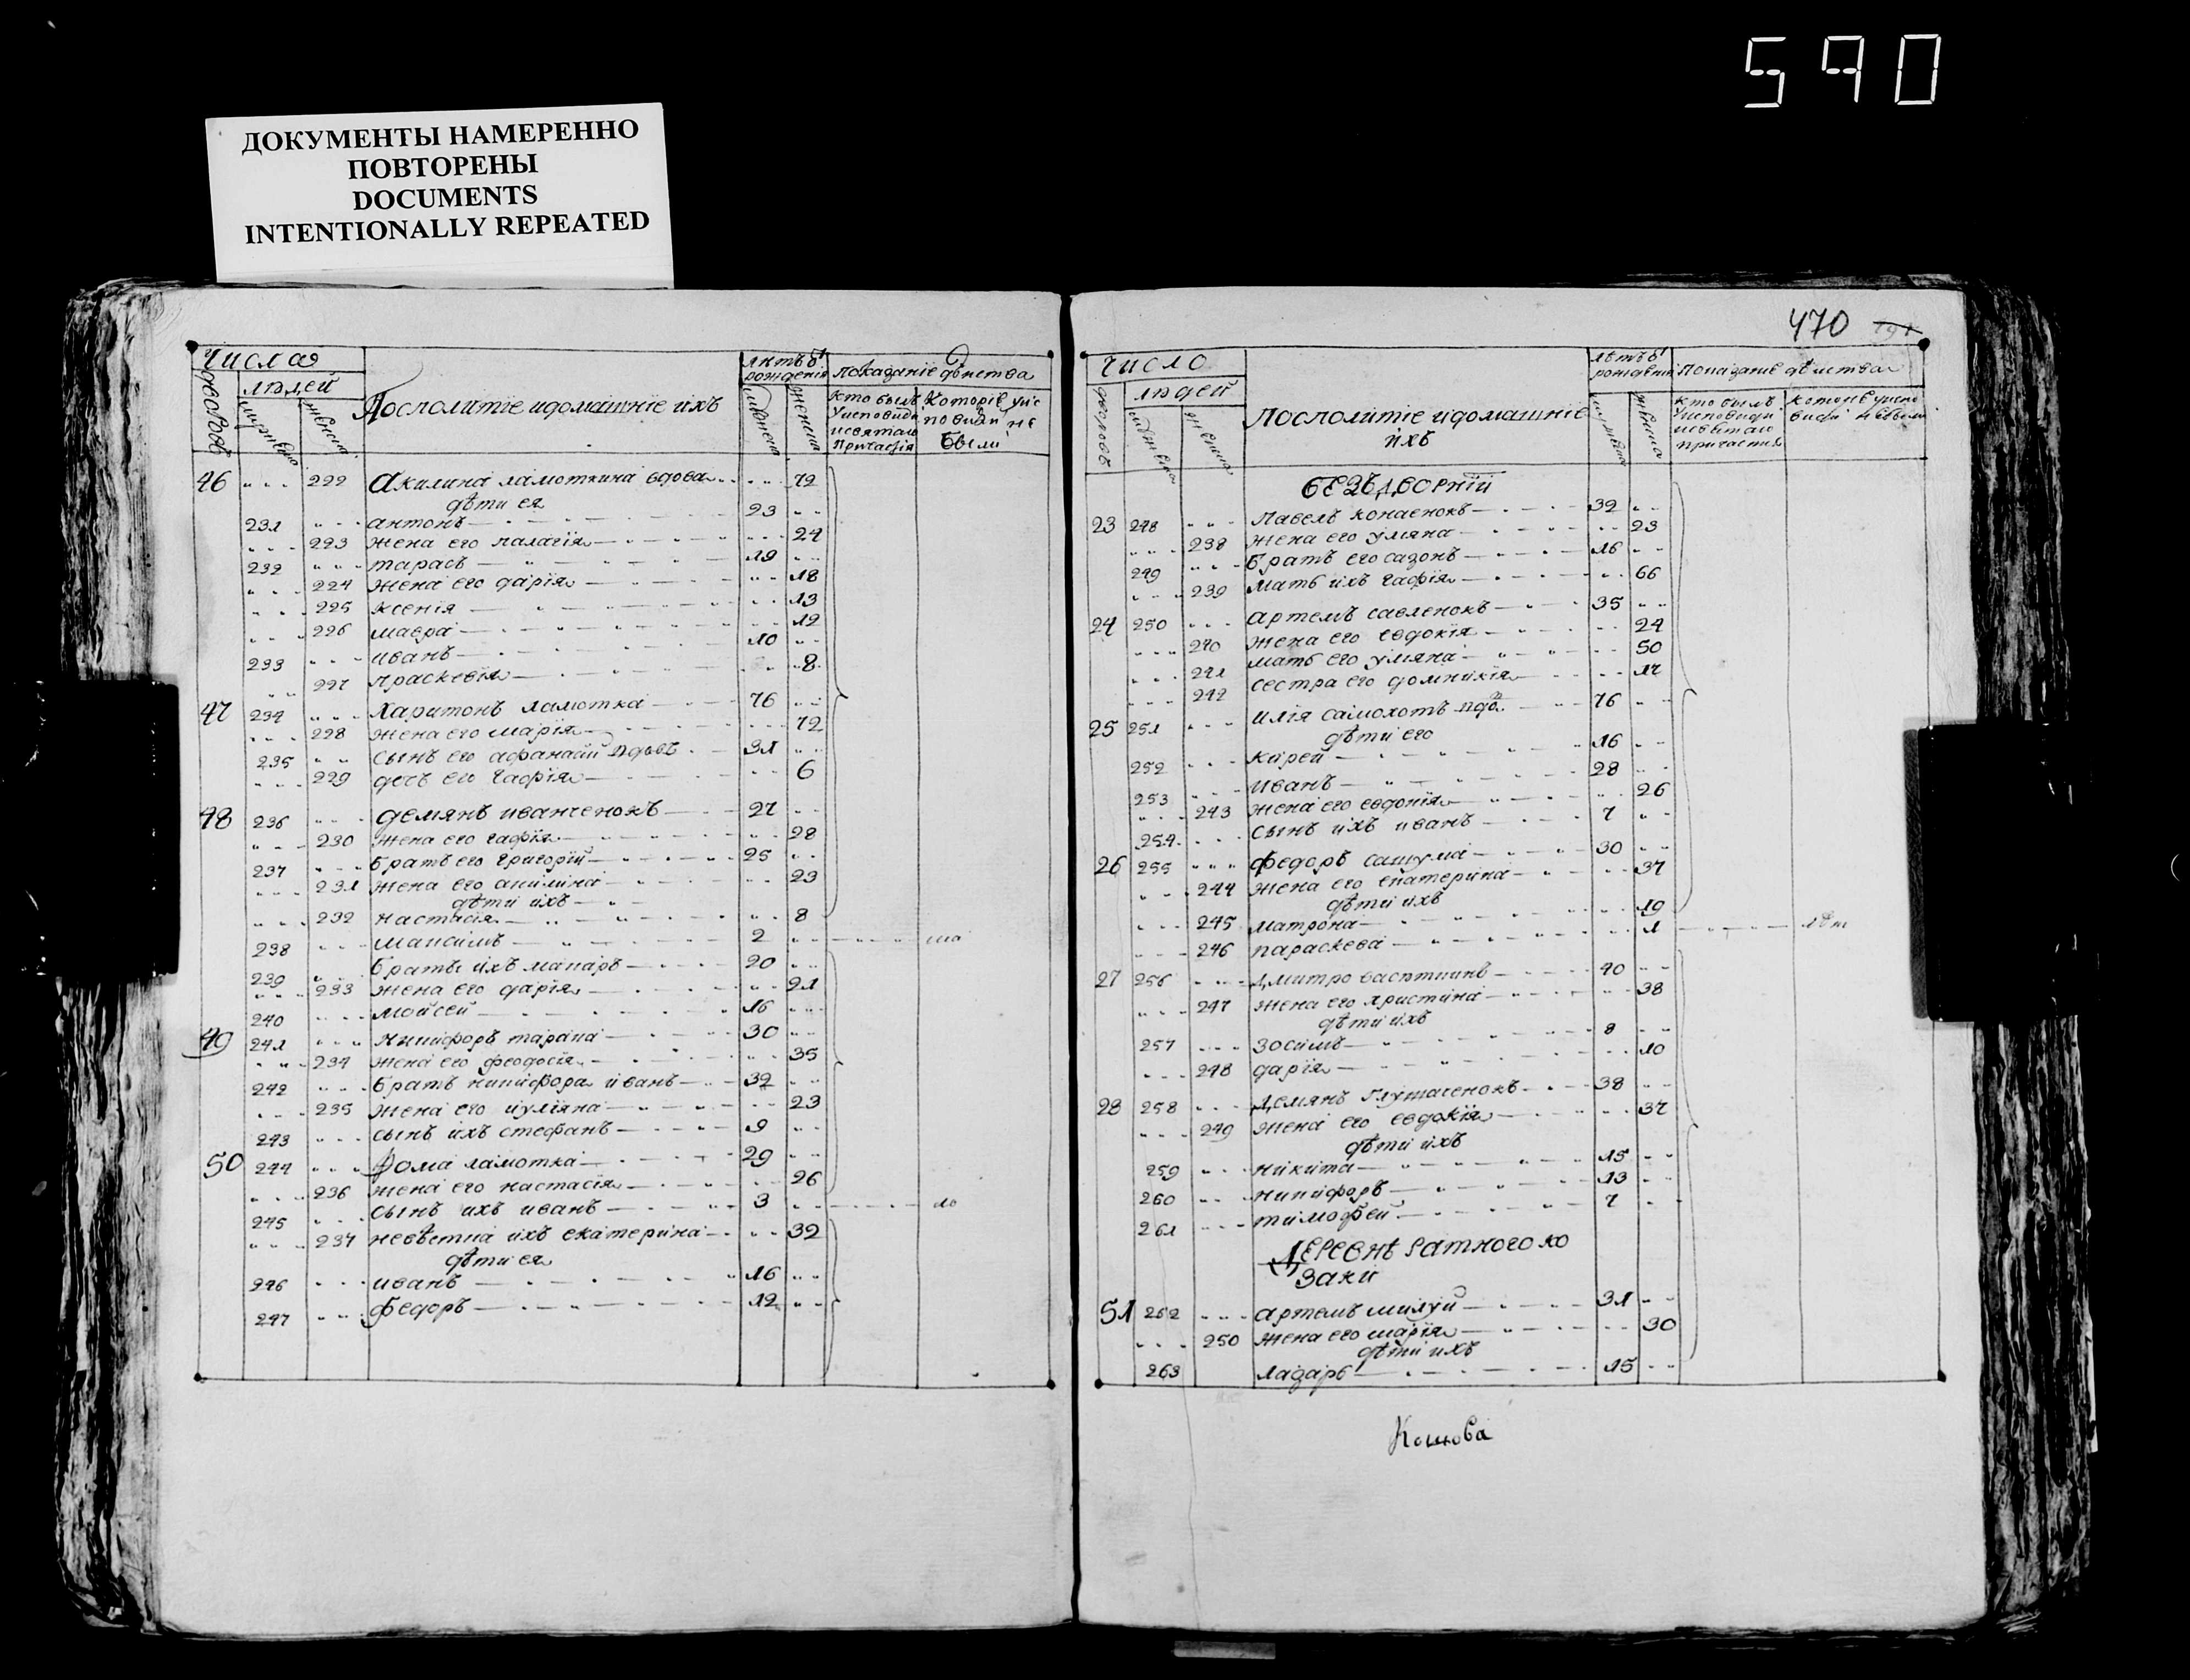 590
ДОКУМЕНТЫ НАМЕРЕННО
ПОВТОРЕНЫ
DOCUMENTS
INTENTIONALLY REPEATED
Числа
людей
Посполитіе идомашніе ихъ
рожденія
показаніе дѣиства
кто былъ
Которіе уис
причастія
были
46 222 Акилина ламоткина вдова 72
дѣти ея
231 антонъ 23
223 жена его палагія 24
232 тарасъ 19
224 жена его дарія 18
225 ксенія 13
226 мавра 12
233 иванъ 10
227 праскевія 8
47 234 Харитонъ ламотка 76
228 жена его марія 72
235 сынъ его афанасій вдовъ 31
229 дочъ его гафія 6
48 236 демянъ иванченокъ 27
230 жена его гафія 28
237 братъ его григорій 25
231 жена его акилина 23
дѣти ихъ
232 настасія 8
238 максимъ 2
239 братъ ихъ макаръ 20
233 жена его дарія 21
240 мойсей 16
49 241 никифоръ тарана 30
234 жена его феодосія 35
242 братъ никифора иванъ 32
235 жена его иуліяна 23
243 сынъ ихъ стефанъ 9
50 244 Фома ламотка 29
236 жена его настасія 26
245 сынъ ихъ иванъ 3
237 невѣстка ихъ екатерина 32
дѣти ея
246 иванъ 16
247 федоръ 12
470
Число
людей
Посполитіе идомашніе
ихъ
Показаніе дѣиства
кто былъ
причастия
БЕЗЪДВОРНІИ
23 248 Павелъ конаенокъ 32
238 жена его уляна 23
249 братъ его сазонъ 16
239 мать ихъ гафія 66
24 250 артемъ савленокъ 35
240 жена его евдокія 24
241 мать его уляна 50
242 сестра его домникія 17
25 251 илія самохотъ вдо 76
дѣти его
252 кирей 16
253 иванъ 28
243 жена его евдокія 26
254 сынъ ихъ иванъ 7
26 255 федоръ сашума 30
244 жена его екатерина 37
дѣти ихъ
245 матрона 19
246 параскева 1
27 256 Дмитро 40
247 жена его христина 38
дѣти ихъ
257 зосимъ 8
248 дарія 10
28 258 Демянъ глушаченокъ 38
249 жена его евдокія 37
дѣти ихъ
259 никита 15
260 никифоръ 13
261 тимофей 7
ДЕРЕВНѢ РАТНОГО КО
ЗАКИ
51 262 артемъ милуй 31
250 жена его марія 30
дѣти ихъ
263 лазаръ 15